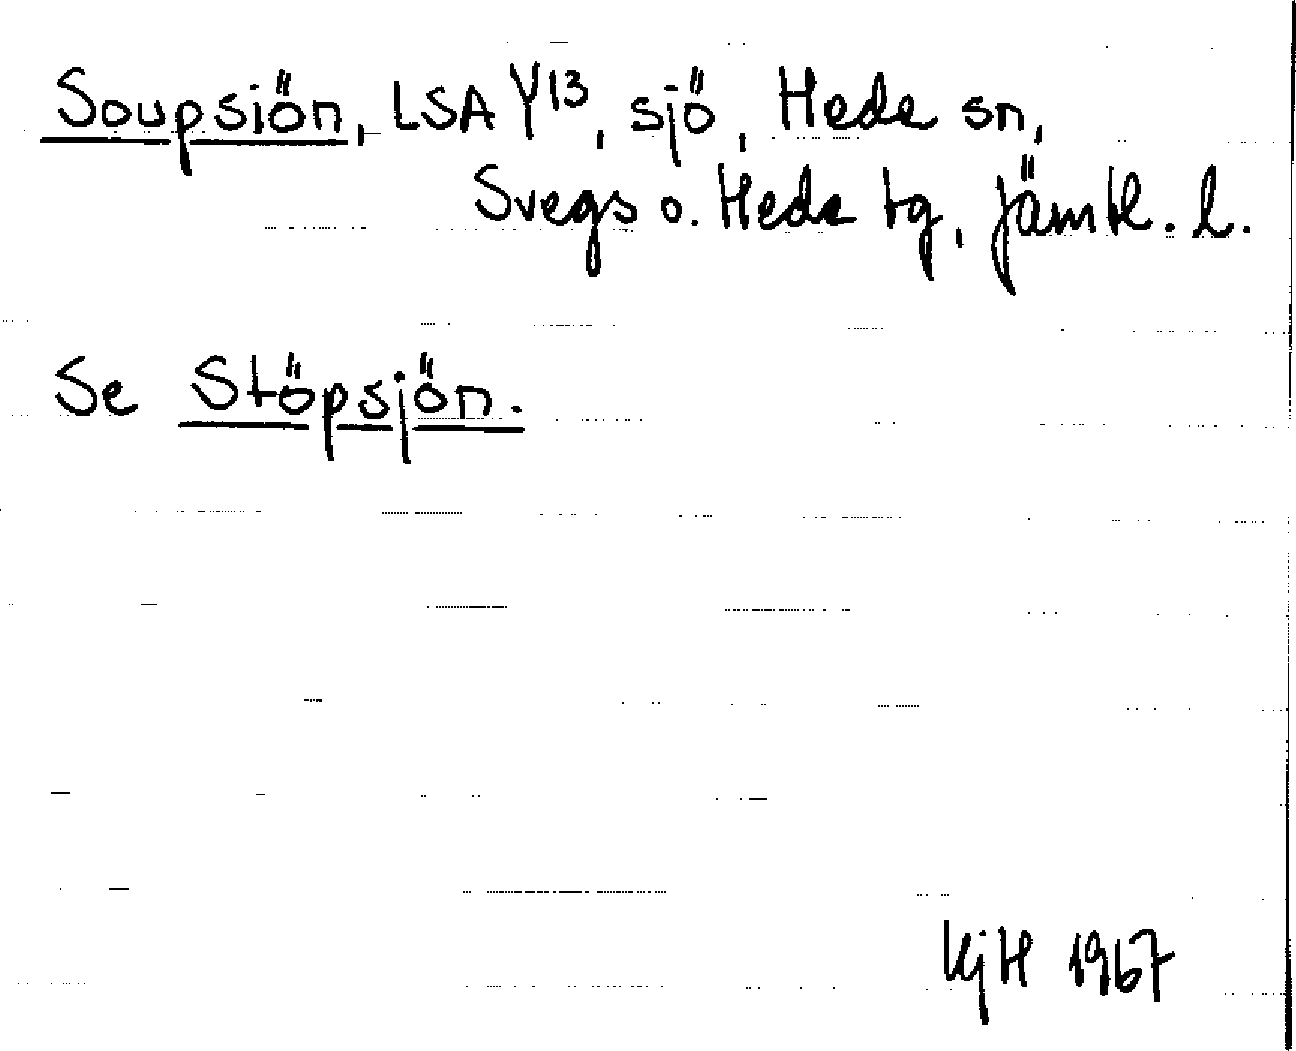 Soupsiön, LSA Y13, sjö, Hede sn,
Svegs o. Hede tg, Jämtl. l.
Se Stöpsjön.
KjH 1967